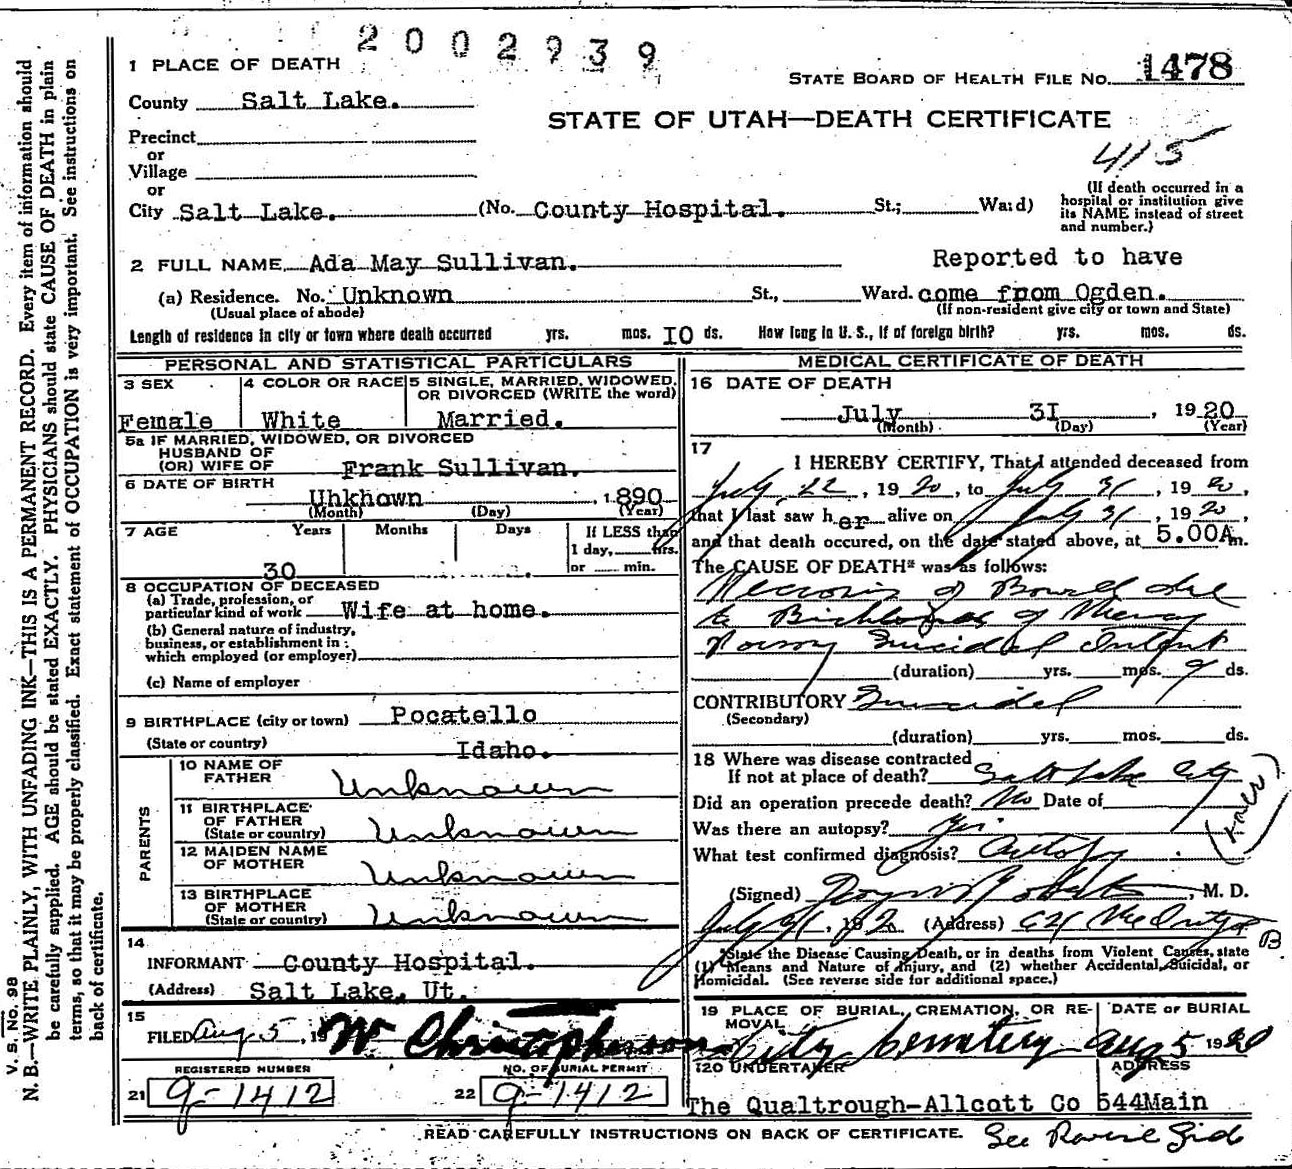 2002939
1 PLACE OF DEATH
STATE BOARD OF HEALTH FILE NO. 1478
County Salt Lake.
STATE OF UTAH—DEATH CERTIFICATE
415
Precinct
or
Village
or
City Salt Lake. (No. County Hospital. St.; Ward)
(If death occurred in a hospital or institution give its NAME instead of street and number.)
2 FULL NAME Ada May Sullivan. Reported to have
(a) Residence. No. Unknown St., Ward. come from Ogden.
(Usual place of abode) (If non-resident give city or town and State)
Length of residence in city or town where death occurred yrs. mos. 10 ds. How long in U. S., if of foreign birth? yrs. mos. ds.
PERSONAL AND STATISTICAL PARTICULARS
3 SEX 4 COLOR OR RACE 5 SINGLE, MARRIED, WIDOWED, OR DIVORCED (WRITE the word)
Female White Married.
5a IF MARRIED, WIDOWED, OR DIVORCED
HUSBAND OF
(OR) WIFE OF Frank Sullivan.
6 DATE OF BIRTH
Uhkhown , 1890
(Month) (Day) (Year)
7 AGE Years Months Days If LESS than
1 day, hrs.
or min.
30
8 OCCUPATION OF DECEASED
(a) Trade, profession, or
particular kind of work Wife at home.
(b) General nature of industry,
business, or establishment in
which employed (or employer)
(c) Name of employer
9 BIRTHPLACE (city or town) Pocatello
(State or country) Idaho.
PARENTS
10 NAME OF
FATHER Unknown
11 BIRTHPLACE
OF FATHER
(State or country) Unknown
12 MAIDEN NAME
OF MOTHER Unknown
13 BIRTHPLACE
OF MOTHER
(State or country) Unknown
14
INFORMANT County Hospital.
(Address) Salt Lake, Ut.
15
FILED Aug 5, 19 W Christopherson
REGISTERED NUMBER NO. OF BURIAL PERMIT
21 9-1412 22 9-1412
MEDICAL CERTIFICATE OF DEATH
16 DATE OF DEATH
July 31, 1920
(Month) (Day) (Year)
17
I HEREBY CERTIFY, That I attended deceased from
July 22, 1920, to July 31, 1920,
that I last saw her alive on July 31, 1920,
and that death occured, on the date stated above, at 5.00A m.
The CAUSE OF DEATH* was as follows:
Necrosis of Bowel due
to Bichloride of Mercury
Poison Suicidal Intent
(duration) yrs. mos. 9 ds.
CONTRIBUTORY Suicidal
(Secondary)
(duration) yrs. mos. ds.
18 Where was disease contracted
If not at place of death? Salt Lake City
Did an operation precede death? No Date of
Was there an autopsy? Yes
What test confirmed diagnosis? Autopsy
(Signed) M. D.
July 31, 1920 (Address)
State the Disease Causing Death, or in deaths from Violent Causes, state
(1) Means and Nature of Injury, and (2) whether Accidental, Suicidal, or
Homicidal. (See reverse side for additional space.)
19 PLACE OF BURIAL, CREMATION, OR RE-
MOVAL DATE OF BURIAL
City Cemetery Aug 5 1920
20 UNDERTAKER ADDRESS
The Qualtrough-Allcott Co 544Main
READ CAREFULLY INSTRUCTIONS ON BACK OF CERTIFICATE. See Reverse Side
V. S. No. 98
N. B.—WRITE PLAINLY, WITH UNFADING INK—THIS IS A PERMANENT RECORD. Every item of information should
be carefully supplied. AGE should be stated EXACTLY. PHYSICIANS should state CAUSE OF DEATH in plain
terms, so that it may be properly classified. Exact statement of OCCUPATION is very important. See instructions on
back of certificate.